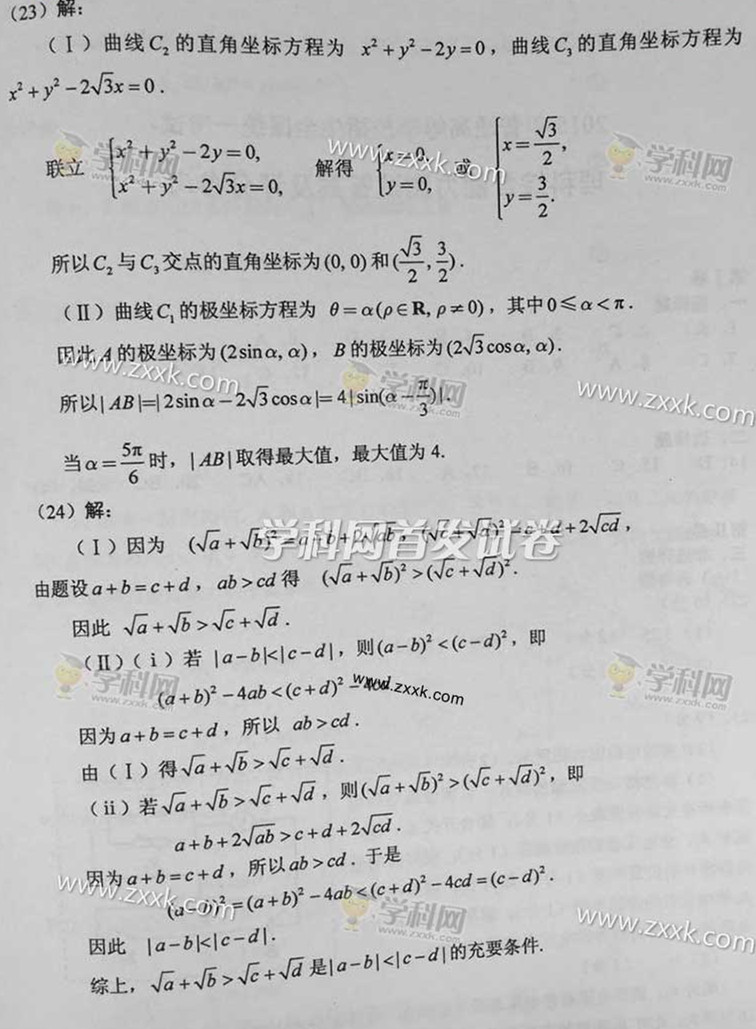 （23）解：
（Ⅰ）曲线C₂的直角坐标方程为 x²+y²-2y=0，曲线C₃的直角坐标方程为
x²+y²-2√3x=0.
联立 {x²+y²-2y=0, x²+y²-2√3x=0, 解得 {x=0, y=0, 或 {x=√3/2, y=3/2.
所以C₂与C₃交点的直角坐标为(0, 0)和(√3/2, 3/2).
（Ⅱ）曲线C₁的极坐标方程为 θ=α(ρ∈R, ρ≠0)，其中0≤α<π.
因此A的极坐标为(2sinα, α)，B的极坐标为(2√3cosα, α).
所以|AB|=|2sinα-2√3cosα|=4|sin(α-π/3)|.
当α=5π/6时，|AB|取得最大值，最大值为4.
（24）解：
（Ⅰ）因为 (√a+√b)²=a+b+2√ab，(√c+√d)²=c+d+2√cd，
由题设a+b=c+d，ab>cd得 (√a+√b)²>(√c+√d)².
因此 √a+√b>√c+√d.
（Ⅱ）（ⅰ）若 |a-b|<|c-d|，则(a-b)²<(c-d)²，即
(a+b)²-4ab<(c+d)²-4cd.
因为a+b=c+d，所以 ab>cd.
由（Ⅰ）得√a+√b>√c+√d.
（ⅱ）若√a+√b>√c+√d，则(√a+√b)²>(√c+√d)²，即
a+b+2√ab>c+d+2√cd.
因为a+b=c+d，所以ab>cd. 于是
(a-b)²=(a+b)²-4ab<(c+d)²-4cd=(c-d)².
因此 |a-b|<|c-d|.
综上，√a+√b>√c+√d是|a-b|<|c-d|的充要条件.
学科网首发试卷
学科网
www.zxxk.com